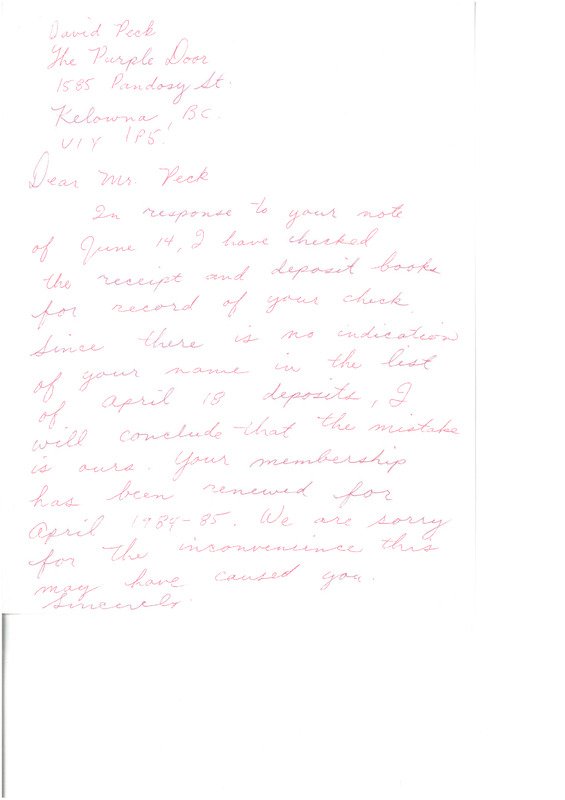 David Peck
The Purple Door
1585 Pandosy St.
Kelowna, BC.
V1Y 1P5.
Dear Mr. Peck
In response to your note
of June 14, I have checked
the receipt and deposit books
for record of your check.
Since there is no indication
of your name in the list
of April 18 deposits, I
will conclude that the mistake
is ours. Your membership
has been renewed for
April 1984-85. We are sorry
for the inconvenience this
may have caused you.
Sincerely